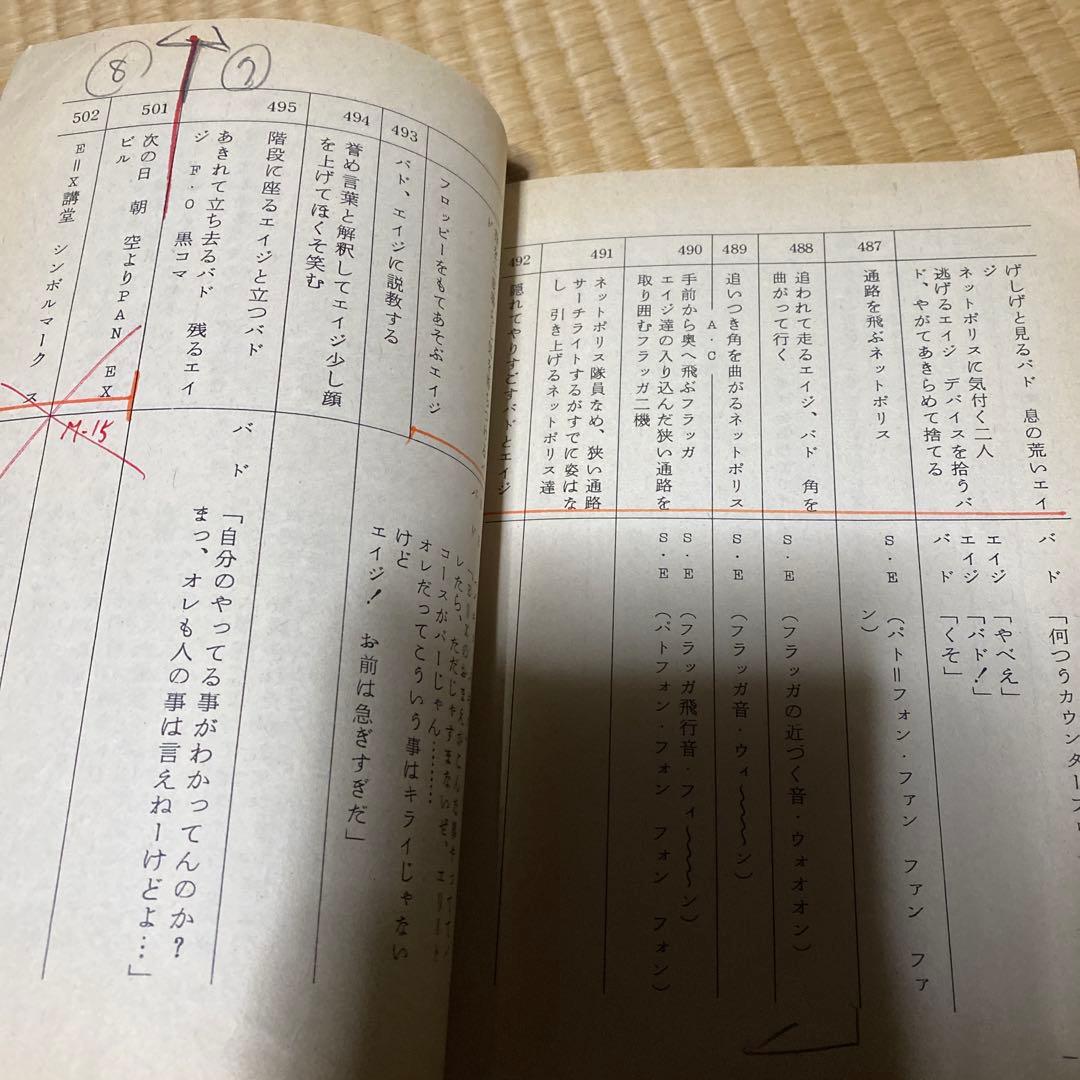 げしげと見るバド 息の荒いエイ
ジ
ネットポリスに気付く二人
逃げるエイジ デバイスを拾うバ
ド、やがてあきらめて捨てる
バ ド
エイジ 「やべえ」
エイジ 「バド!」
バ ド 「くそ」
487
通路を飛ぶネットポリス
S・E (パト=フォン・ファン ファン ファ
ン)
488
追われて走るエイジ、バド 角を
曲がって行く
S・E (フラッガの近づく音・ウォオオン)
489
追いつき角を曲がるネットポリス
S・E (フラッガ音・ウィ〜〜〜ン)
A・C
490
手前から奥へ飛ぶフラッガ
エイジ達の入り込んだ狭い通路を
取り囲むフラッガ二機
S・E (フラッガ飛行音・フィ〜〜〜ン)
S・E (パトフォン・フォン フォン フォン)
491
ネットポリス隊員なめ、狭い通路
サーチライトするがすでに姿はな
し 引き上げるネットポリス達
492
隠れてやりすごすバドとエイジ
フロッピーをもてあそぶエイジ
したら、ただじゃすまないぜ、
コースがパーじゃん………
オレだってこういう事はキライじゃない
けど
エイジ! お前は急ぎすぎだ」
493
バド、エイジに説教する
494
誉め言葉と解釈してエイジ少し顔
を上げてほくそ笑む
495
階段に座るエイジと立つバド
あきれて立ち去るバド 残るエイ
ジ F・O 黒コマ
バ ド
「自分のやってる事がわかってんのか?
まっ、オレも人の事は言えねーけどよ…」
⑦
⑧
501
次の日 朝 空よりPAN EX
ビル
M-15
502
E=X講堂 シンボルマーク ス